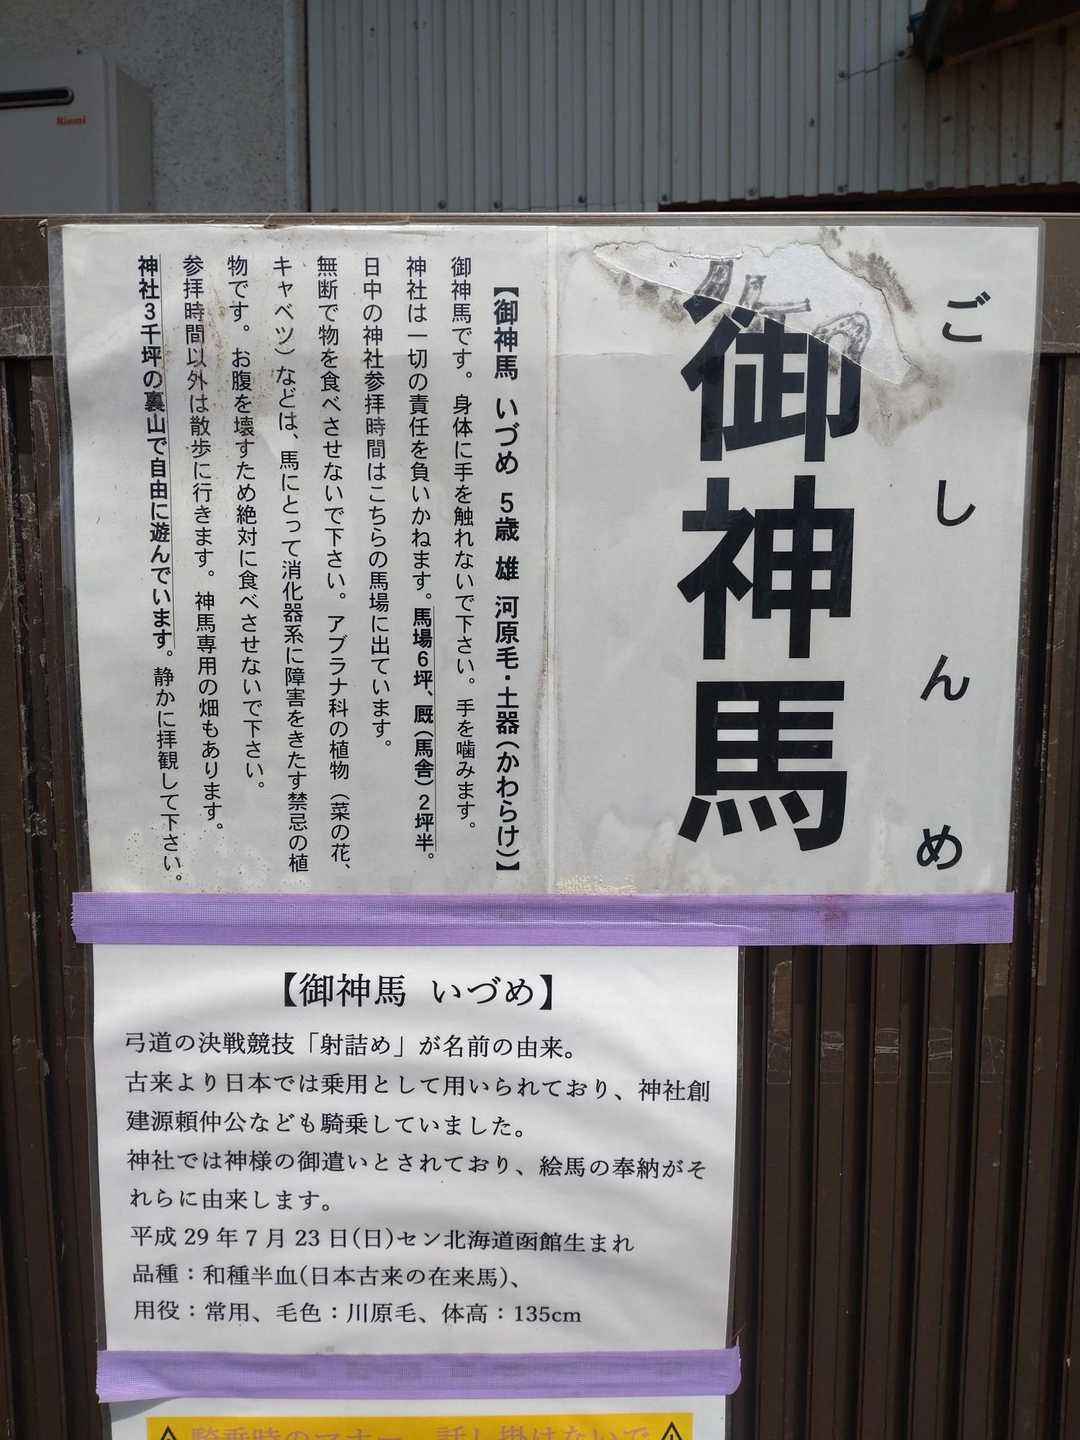 Rinnai
ごしんめ
御神馬
【御神馬 いづめ 5歳 雄 河原毛・土器(かわらけ)】
御神馬です。身体に手を触れないで下さい。手を噛みます。
神社は一切の責任を負いかねます。馬場6坪、厩(馬舎)2坪半。
日中の神社参拝時間はこちらの馬場に出ています。
無断で物を食べさせないで下さい。アブラナ科の植物(菜の花、
キャベツ)などは、馬にとって消化器系に障害をきたす禁忌の植
物です。お腹を壊すため絶対に食べさせないで下さい。
参拝時間以外は散歩に行きます。神馬専用の畑もあります。
神社3千坪の裏山で自由に遊んでいます。静かに拝観して下さい。
【御神馬 いづめ】
弓道の決戦競技「射詰め」が名前の由来。
古来より日本では乗用として用いられており、神社創
建源頼仲公なども騎乗していました。
神社では神様の御遣いとされており、絵馬の奉納がそ
れらに由来します。
平成29年7月23日(日)セン北海道函館生まれ
品種：和種半血(日本古来の在来馬)、
用役：常用、毛色：川原毛、体高：135cm
騎乗時のマナー 話し掛けないで